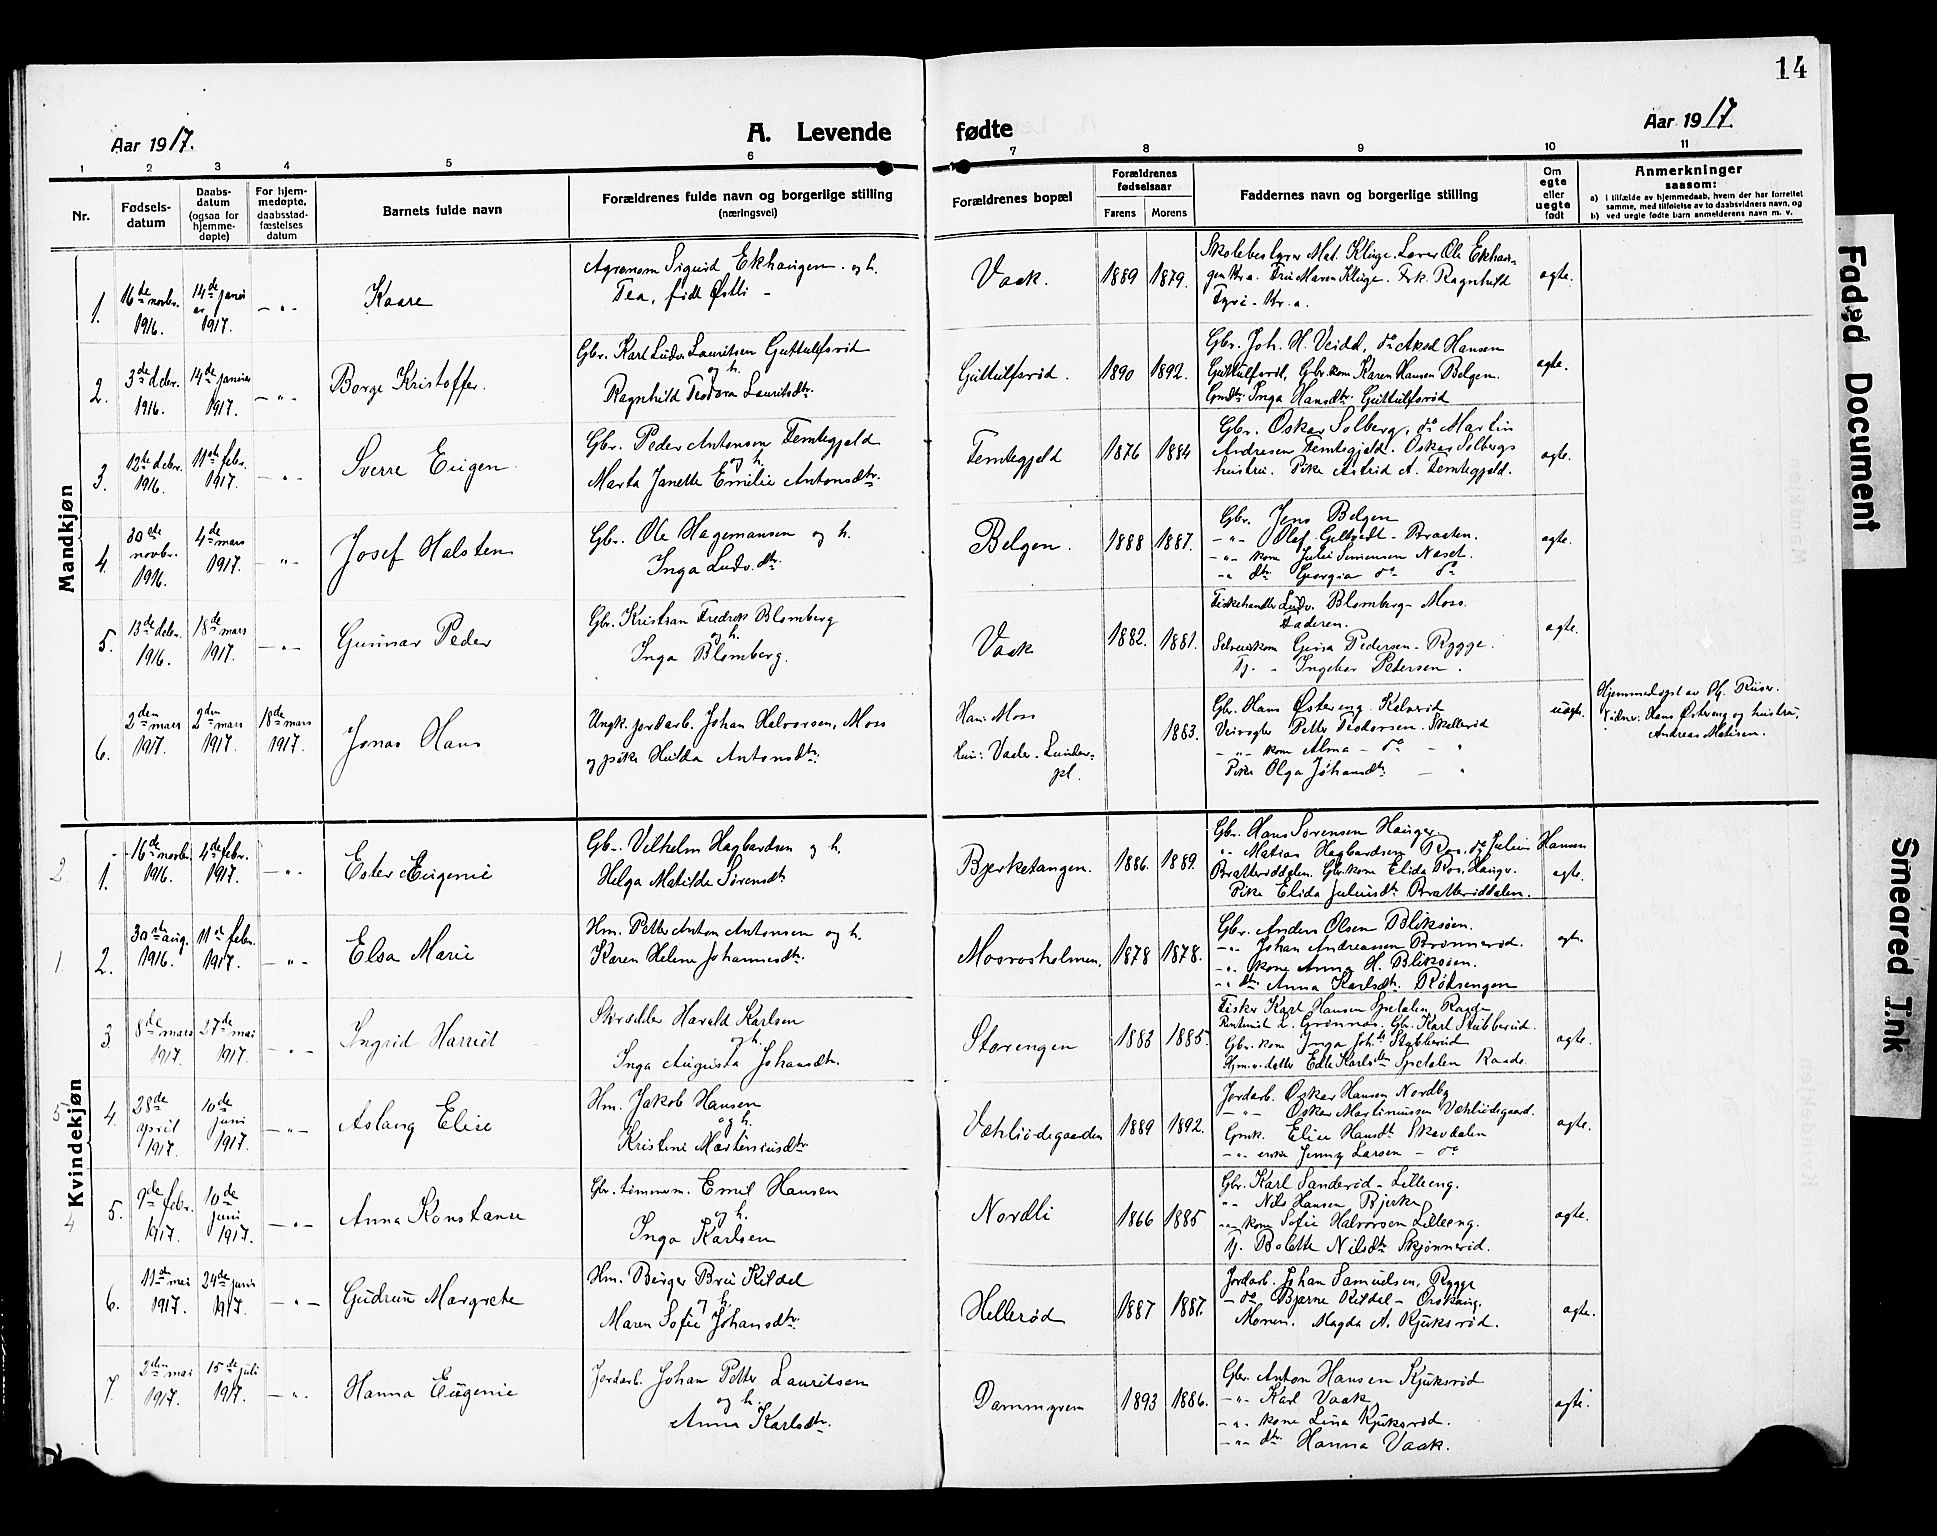 14
Aar 1917.
A. Levende fødte
Aar 1917.
1 2 3 4 5 6 7 8 9 10 11
Nr.
Fødsels-
datum
Daabs-
datum
(ogsaa for
hjemme-
døpte)
For hjem-
medøpte,
daabsstad-
fæstelses
datum
Barnets fulde navn
Forældrenes fulde navn og borgerlige stilling
(næringsvei)
Forældrenes bopæl
Forældrenes
fødselsaar
Farens Morens
Faddernes navn og borgerlige stilling
Om
egte
eller
uegte
født
Anmerkninger
saasom:
a) i tilfælde av hjemmedaab, hvem der har forrettet
samme, med tilføielse av to daabsvidners navn, og
b) ved uegte fødte barn anmelderens navn m. v.
Mandkjøn
1. 16de novbr. 1916. 14de januar 1917. - " - Kaare
Agronom Sigurd Ekhaugen og h.
Tea, født Østli -
Vaak. 1889 1879.
Skolebestyrer Mat. Kluge. Lærer Ole Ekhau-
gen Kr.a. Fru Maren Kluge. Frk. Ragnhild
Fyri - Kr.a.
egte.
2. 3de debr. 1916. 14de januar 1917. - " - Borge Kristoffer.
Gbr. Karl Ludv. Lauritsen Guttulfsrød
og h.
Ragnhild Teodora Lauritsdtr.
Guttulfsrød. 1890 1892.
Gbr. Joh. H. Veidal, do Aksel Hansen
Guttulfsrød, Gbr.kom Karen Hansen Belgen.
Gmdtr. Inga Hansdtr. Guttulfsrød
egte.
3. 12te debr. 1916. 11te febr. 1917. - " - Sverre Eugen
Gbr. Peder Antonsen Femtegjeld
og h.
Marta Janette Emilie Antonsdtr.
Femtegjeld 1876 1884
Gbr. Oskar Solberg, do Martin
Andresen Femtegjeld. Oskar Solbergs
hustru. Pike Astrid A. Femtegjeld.
egte.
4. 30te novbr. 1916 4de mars 1917. - " - Josef Halsten
Gbr. Ole Hagemansen og h.
Inga Ludv.dtr.
Belgen. 1888 1887.
Gbr. Jens Belgen
- " - Olaf Gilbredt - Braaten.
- " - kone Julie Simensen Næset.
- " dtr. Georgia do do
egte.
5. 13de debr. 1916. 18de mars 1917. - " - Gunnar Peder
Gbr. Kristian Fredrik Blomberg
og h.
Inga Blomberg.
Vaak 1882. 1881.
Fiskehandler Ludv. Blomberg - Moss.
Faderen.
Selveierkone Guira Pedersen - Rygge.
Tj. - Ingebor Petersen.
egte.
6. 2den mars 1917. 2den mars 1917. 18de mars 1917. Jonas Hans
Ungk. jordarb. Johan Halvorsen, Moss
og pike Hulda Antonsdtr.
Han: Moss
Hun: Vaaler. Lunder-
pl.
1883.
Gbr. Hans Østereng Kolsrød
Veivogter Petter Teodorsen. Skellerød
- " - kone Alma - do - "
Pike Olga Johansdtr. - "
uegte.
Hjemmedøpt av Og. Riiser.
Vidner: Hans Østereng og hustru,
Andreas Matisen.
Kvindekjøn
2 1. 16de novbr. 1916. 4de febr. 1917. - " - Ester Eugenie
Gbr. Vilhelm Hagbardsen og h.
Helga Matilde Sørensdtr.
Bjerketangen. 1886. 1889.
Gbr. Hans Sørensen Hauger.
" Matias Hagbardsen Ros. do Julius Hansen
Bratterøddalen. Gbr.kone Elida Ros. Haugv.
Pike Elida Juliusdtr. Bratterøddalen.
egte.
1. 2. 30te aug. 1916. 11te febr. 1917. - " - Elsa Marie
Hm. Petter Anton Antonsen og h.
Karen Helene Johannesdtr.
Mosrosholmen. 1878 1878.
Gbr. Anders Olsen Bliksøen.
- " - Johan Andreassen Brønnerød.
- " - kone Anna H. Bliksøen.
- " dtr. Anna Karlsdtr. Rørsengen
egte
3. 8de mars 1917. 27de mai 1917. - " - Ingrid Harriet
Skrædder Harald Karlsen
og h.
Inga Augusta Johansdtr.
Storengen 1883 1885.
Fisker Karl Hansen Spetalen, Raade
Rentenist L. Grønnos. Gbr. Karl Stubberud.
Gbr. kom Inga Joh.dtr Stubberud
Hjm.v. datter Edle Karlsdtr Spetalen Raade.
egte.
5 4. 28de april 1917. 10de juni 1917. - " - Aslaug Elise
Hm. Jakob Hansen
og h.
Kristine Martiniusdtr.
Væhliødegaarden 1889 1892.
Jordarb. Oskar Hansen Nordby
- " - Oskar Martinussen Væhliødegaard.
Gmk. Elise Hansdtr. Skavdalen
- " - enke Jenny Larsen - do
egte.
4 5. 9de febr. 1917. 10de juni 1917. - " - Anna Konstanse
Gbr. tømmerm. Emil Hansen
og h.
Inga Karlsen
Nordli 1866 1885
Gbr. Karl Sanderød - Lilleeng.
" - Nils Hansen Bjerke
- " - kone Sofie Halvorsen Lilleeng.
Tj. Bolette Nilsdtr. Skjønnerød.
egte.
6. 11te mai 1917. 24de juni 1917. - " - Gudrun Margrete
Hm. Birger Brei Kildal
og h.
Maren Sofie Johansdtr.
Hellerød 1887 1887.
Jordarb. Johan Samuelsen, Rygge
- do - Bjarne Kildal - Orskaug.
Moren. Magda A. Kjuksrød.
egte.
7. 2den mai 1917. 15de juli 1917. - " - Hanna Eugenie
Jordarb. Johan Petter Lauritsen
og h.
Anna Karlsdtr.
Dammyren 1893 1886.
Gbr. Anton Hansen Kjuksrød
- " - Karl Vaak
- " - kone Lina Kjuksrød.
- " - dtr. Hanna Vaak.
egte.
Faded Document
Smeared Ink